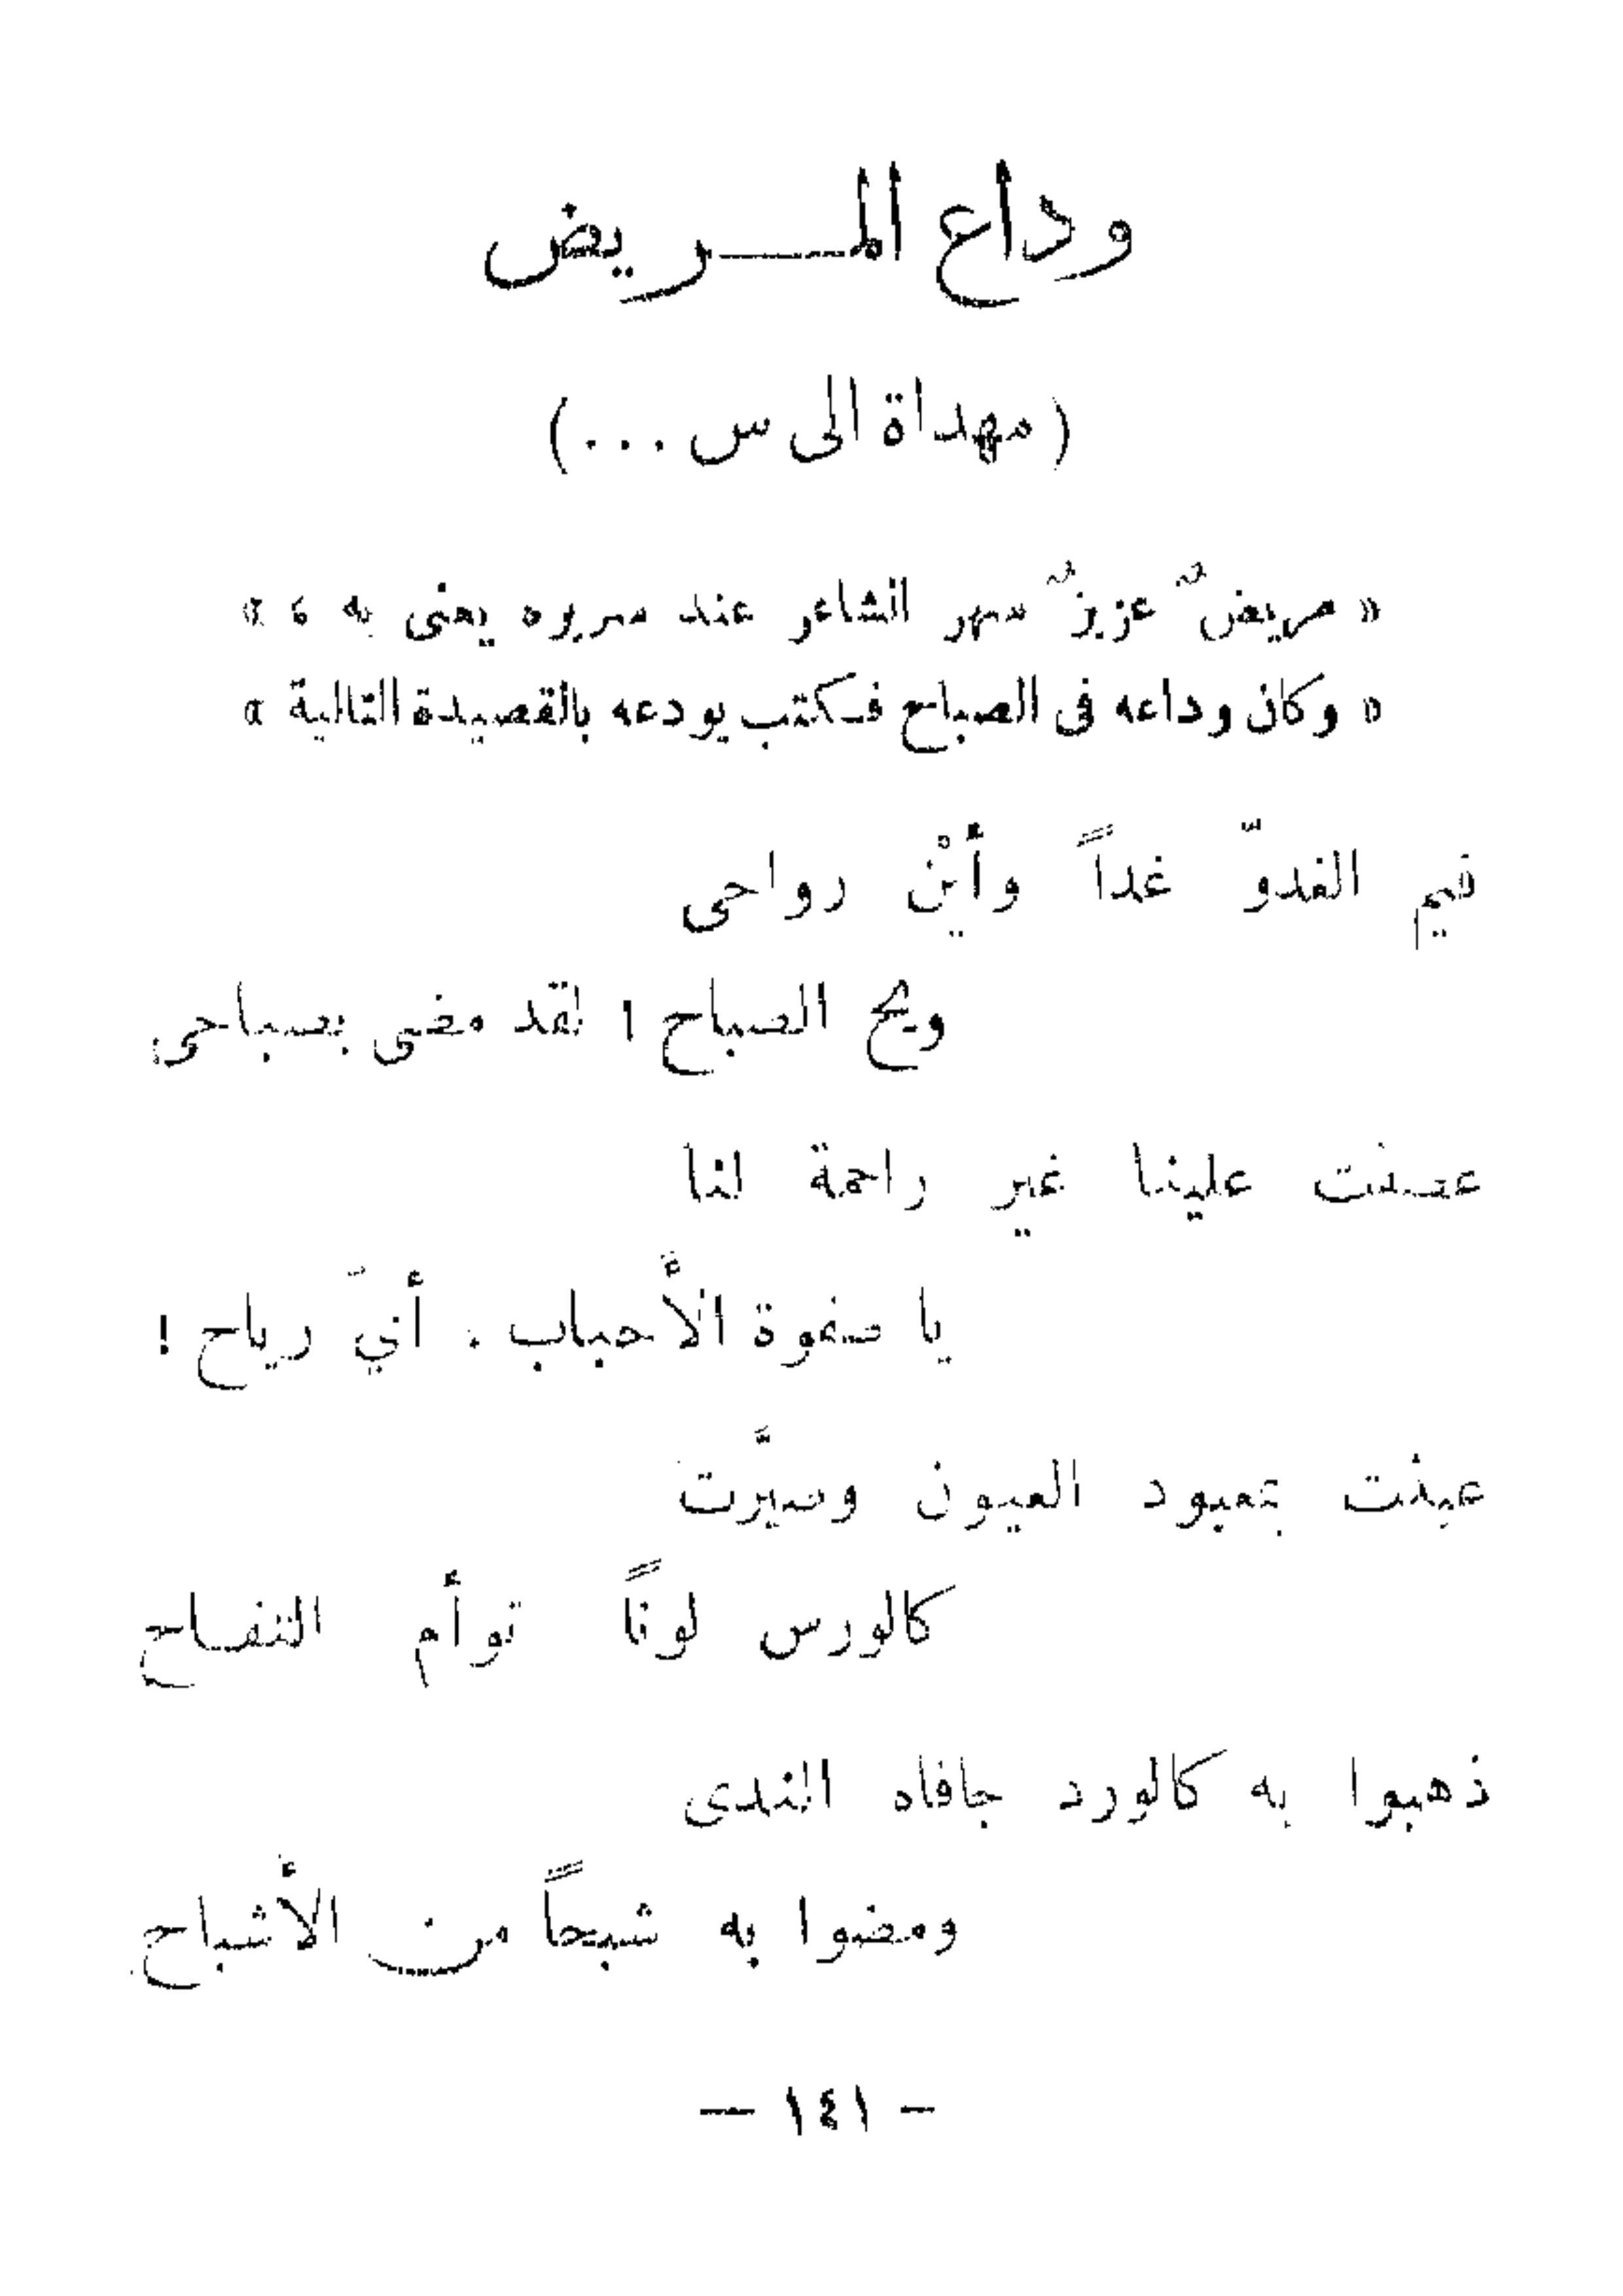 وداع المريض
(مهداة الى س ...)
« مريضٌ عزيزٌ سهر الشاعر عند سريره يعنى به ، »
« وكان وداعه فى الصباح فكتب يودعه بالقصيدة التالية »
فيم الغدوّ غداً وأيْن رواحى
ويح الصباح ! لقد مضى بصباحى
عصفت علينا غير راحمة لنا
يا صفوة الأحباب . أيّ رياح !
عبثت بمعبود العيون وصيَّرت
كالورس لوناً توأم التفاح
ذهبوا به كالورد جافاه الندى
ومضوا به شبحاً من الأشباح
— ١٤١ —